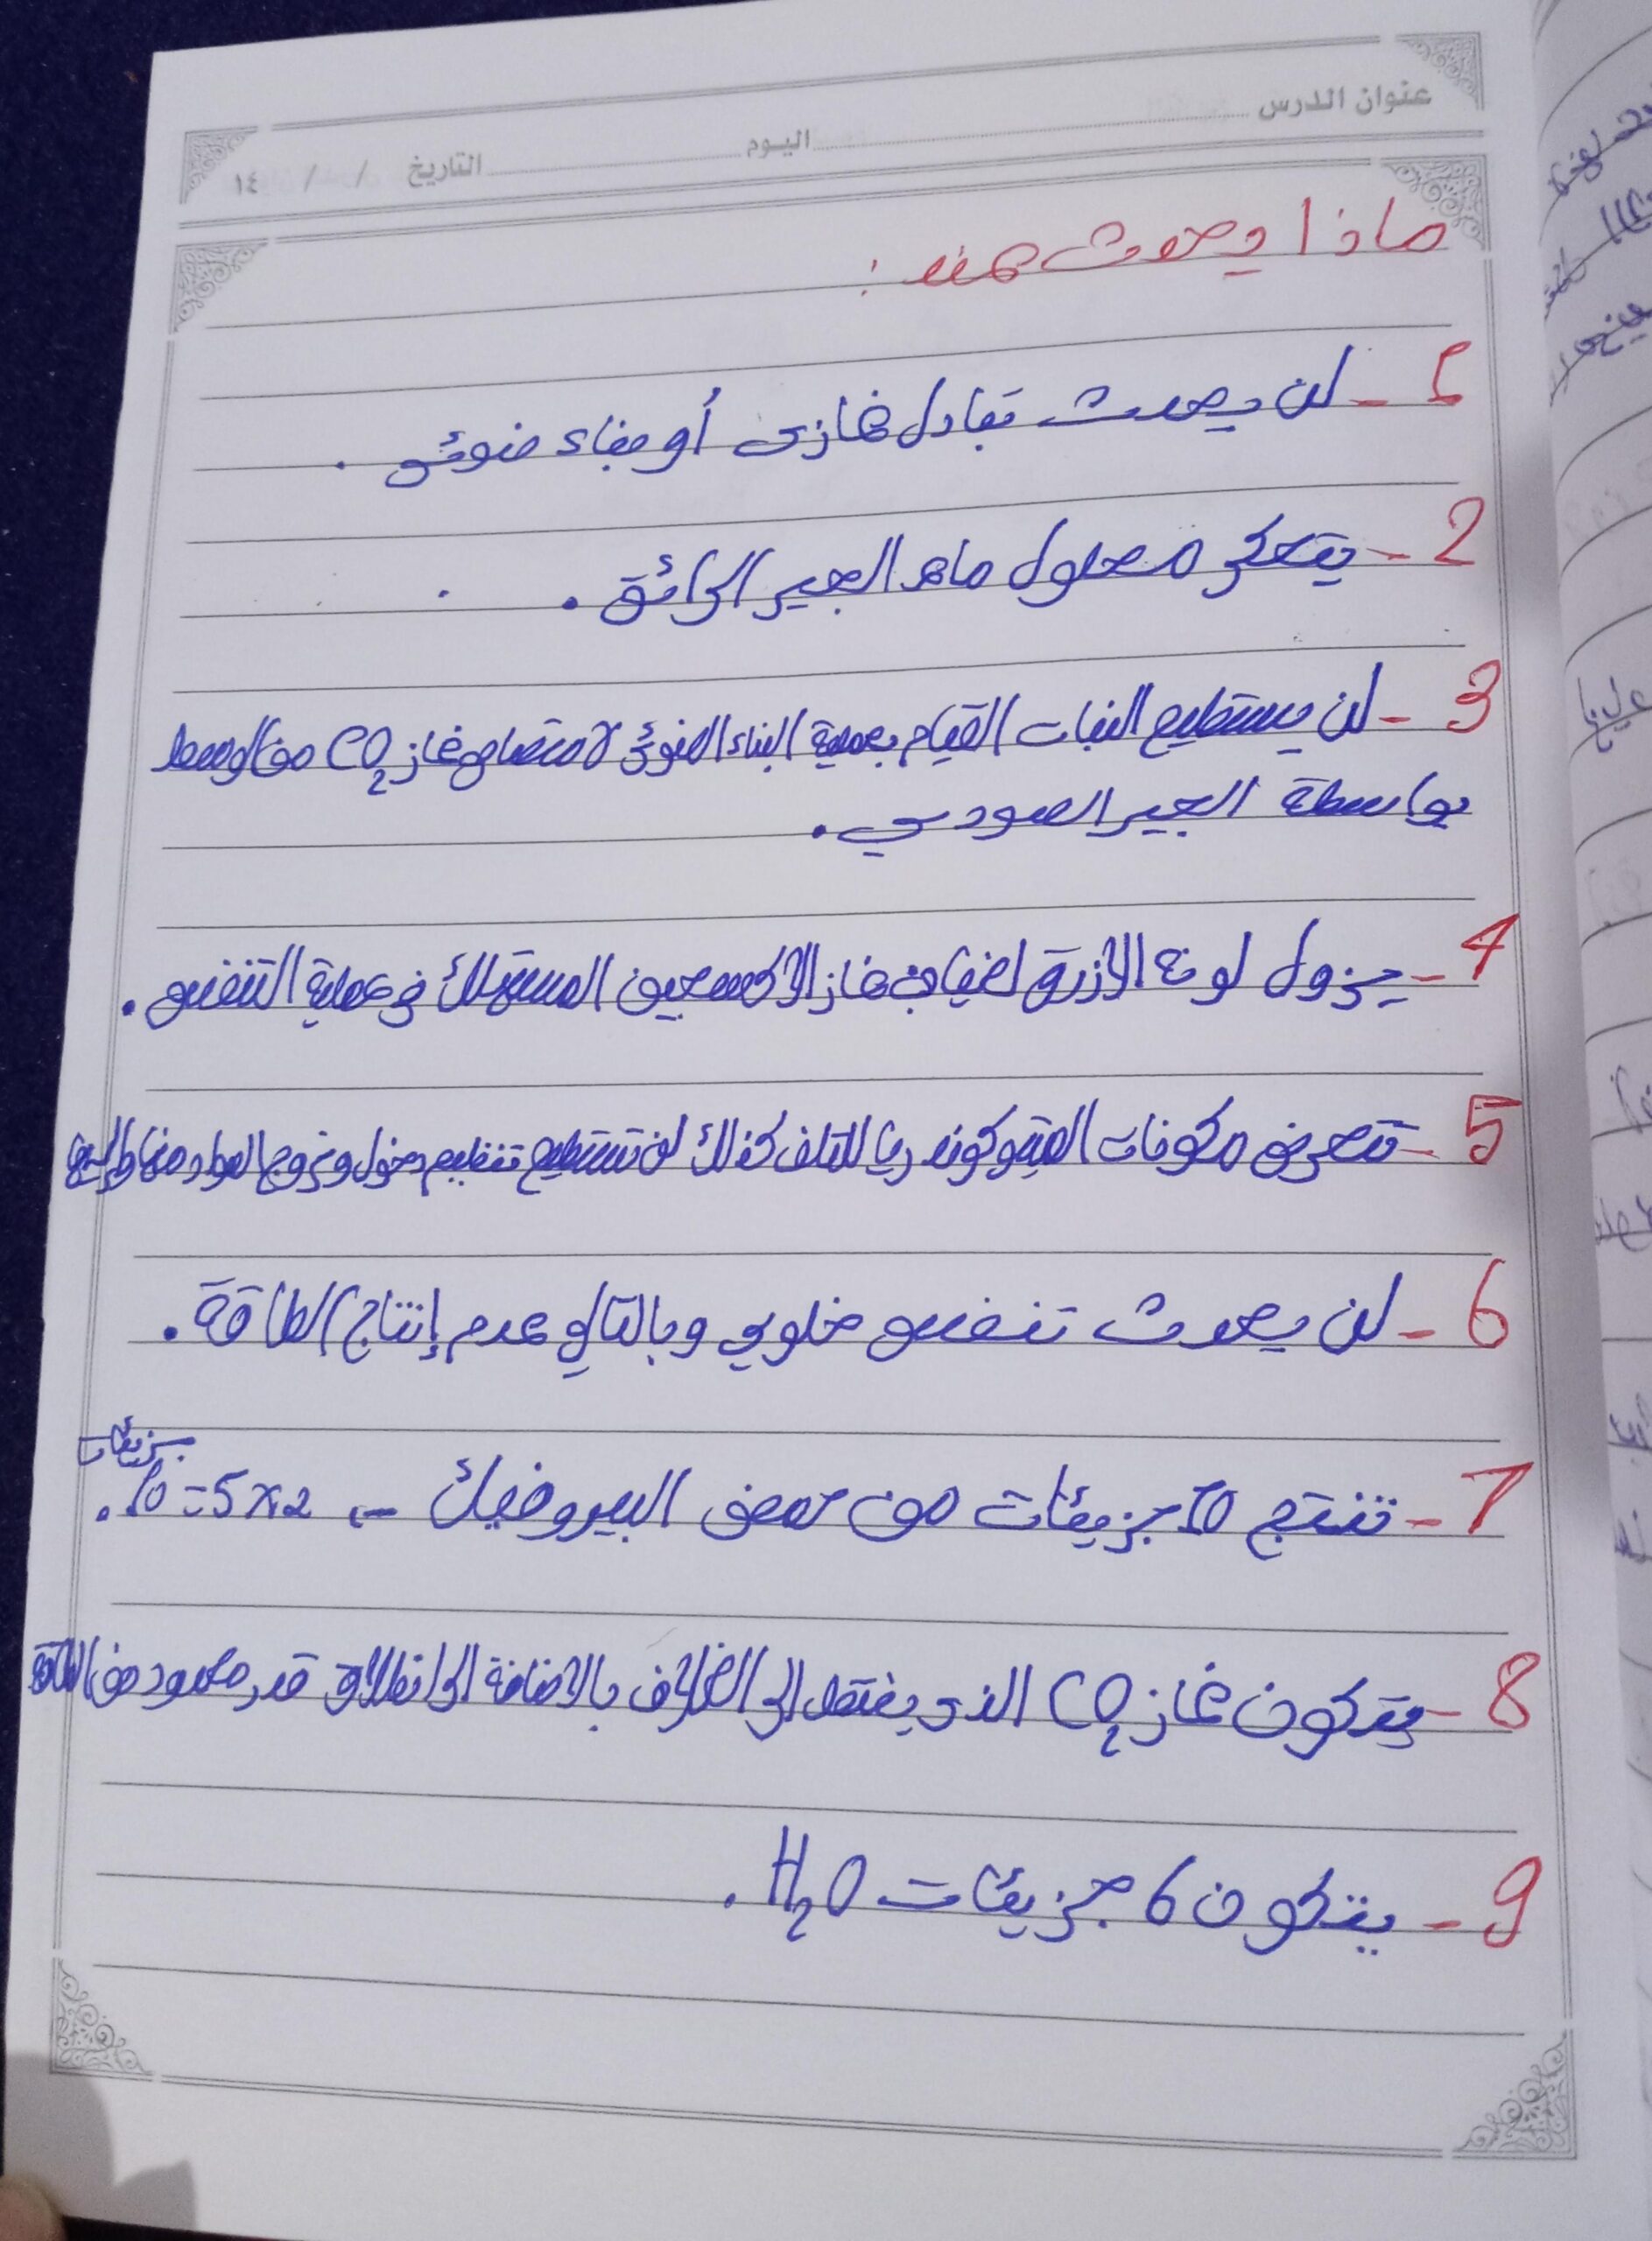 عنوان الدرس اليوم التاريخ / / ١٤
ماذا يحدث عند :
1- لن يحدث تبادل غازي أو بناء ضوئي .
2- يتعكر محلول ماء الجير الرائق .
3- لن يستطيع النبات القيام بعملية البناء الضوئي لامتصاص غاز CO2 من الوسط
بواسطة الجير الصودي .
4- يزول لونه الأزرق لغياب غاز الاكسجين المستهلك في عملية التنفس .
5- تتعرض مكونات الميتوكوندريا للتلف كذلك لن تستطيع تنظيم دخول وخروج المواد من وإليها
6- لن يحدث تنفس خلوي وبالتالي عدم إنتاج الطاقة .
7- تنتج 10 جزيئات من حمض البيروفيك - 2×5=10 جزيئات .
8- يتكون غاز CO2 الذي ينتقل إلى الخارج بالاضافة الى انطلاق قدر محدود من الطاقة
9- يتكون 6 جزيئات H2O .